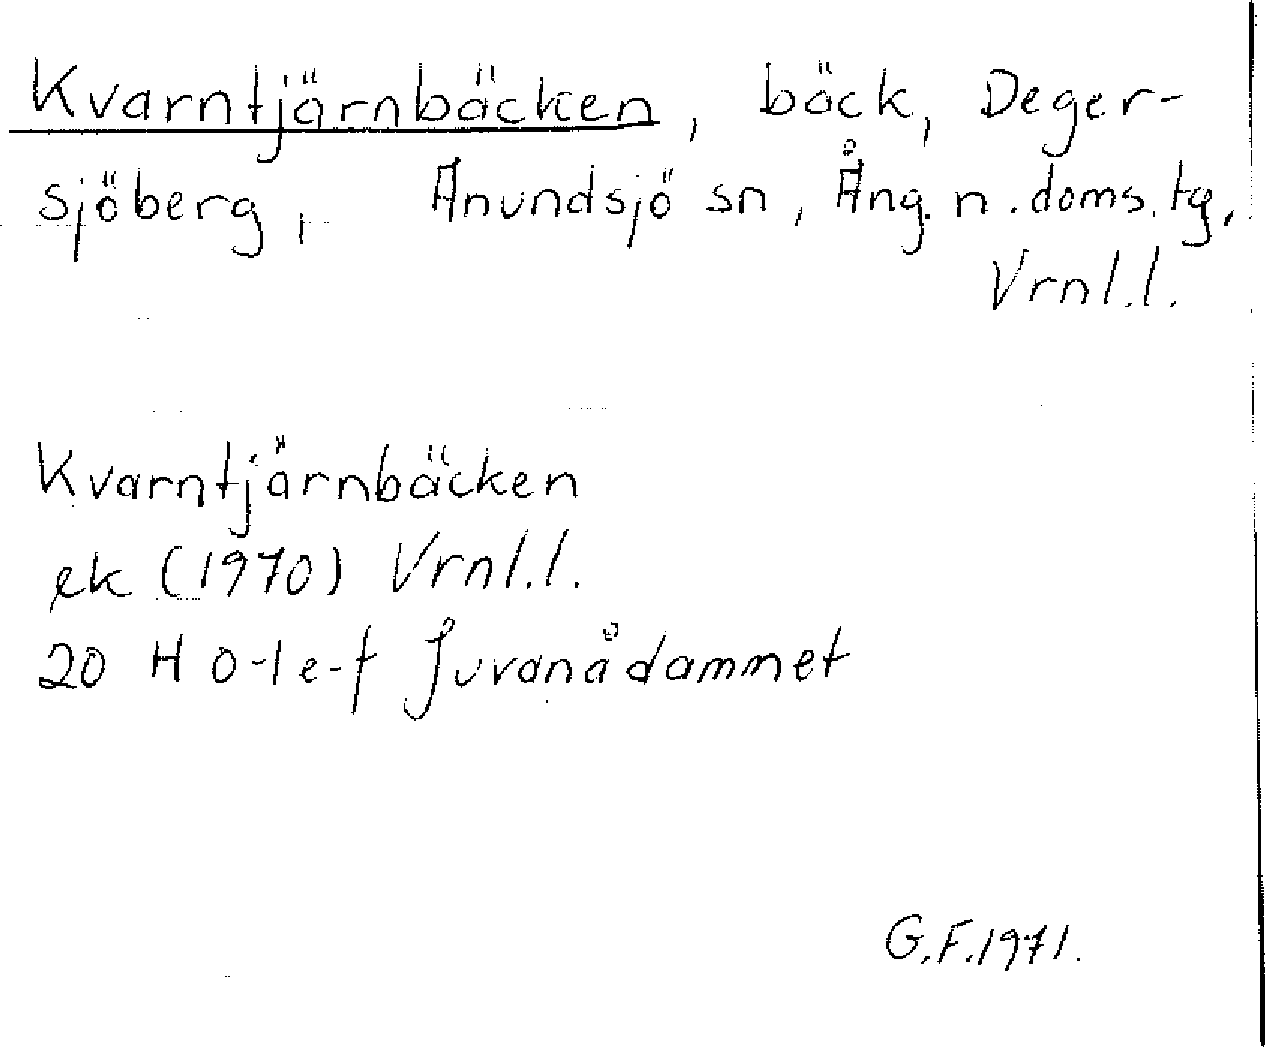 Kvarntjärnbäcken, bäck, Deger-
sjöberg, Anundsjö sn, Ång. n. doms. tg,
Vrnl.l.
Kvarntjärnbäcken
ek (1970) Vrnl.l.
20 H 0-1 e-f Juvanådammet
G.F.1971.